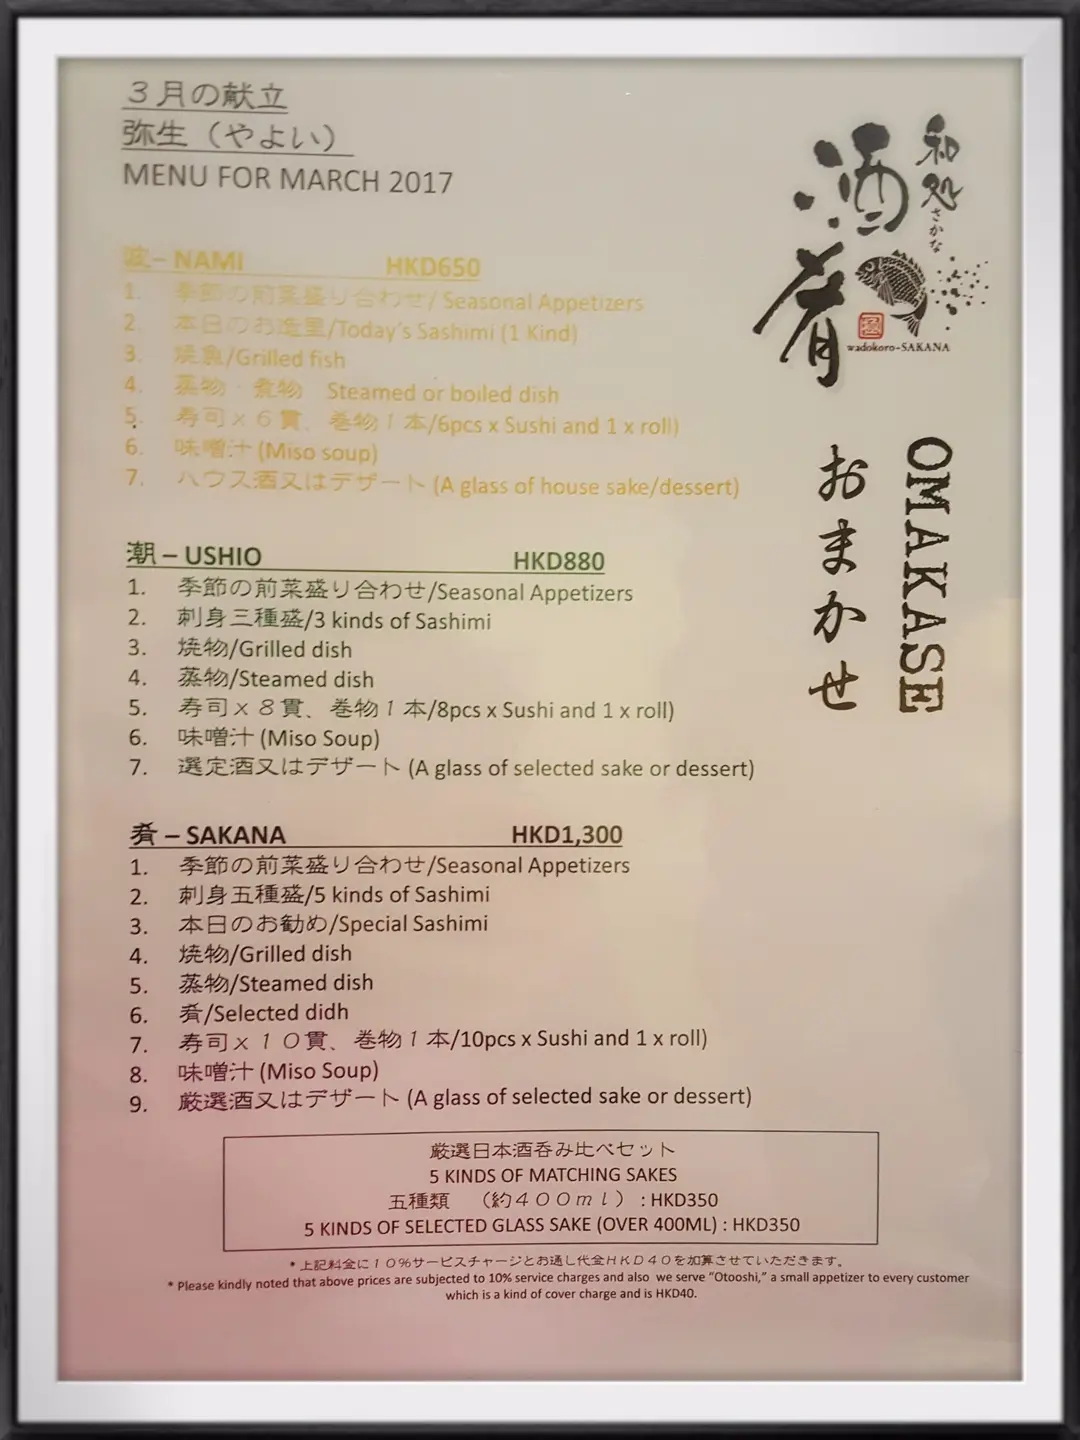 ３月の献立
弥生（やよい）
MENU FOR MARCH 2017
和処さかな
酒肴
wadokoro-SAKANA
OMAKASE
おまかせ
波– NAMI HKD650
1. 季節の前菜盛り合わせ/ Seasonal Appetizers
2. 本日のお造里/Today's Sashimi (1 Kind)
3. 焼魚/Grilled fish
4. 蒸物・煮物 Steamed or boiled dish
5. 寿司ｘ６貫、巻物１本/6pcs x Sushi and 1 x roll)
6. 味噌汁 (Miso soup)
7. ハウス酒又はデザート (A glass of house sake/dessert)
潮 – USHIO HKD880
1. 季節の前菜盛り合わせ/Seasonal Appetizers
2. 刺身三種盛/3 kinds of Sashimi
3. 焼物/Grilled dish
4. 蒸物/Steamed dish
5. 寿司ｘ８貫、巻物１本/8pcs x Sushi and 1 x roll)
6. 味噌汁 (Miso Soup)
7. 選定酒又はデザート (A glass of selected sake or dessert)
肴 – SAKANA HKD1,300
1. 季節の前菜盛り合わせ/Seasonal Appetizers
2. 刺身五種盛/5 kinds of Sashimi
3. 本日のお勧め/Special Sashimi
4. 焼物/Grilled dish
5. 蒸物/Steamed dish
6. 肴/Selected didh
7. 寿司ｘ１０貫、巻物１本/10pcs x Sushi and 1 x roll)
8. 味噌汁 (Miso Soup)
9. 厳選酒又はデザート (A glass of selected sake or dessert)
厳選日本酒呑み比べセット
5 KINDS OF MATCHING SAKES
五種類 （約４００ｍｌ）: HKD350
5 KINDS OF SELECTED GLASS SAKE (OVER 400ML) : HKD350
* 上記料金に１０％サービスチャージとお通し代金ＨＫＤ４０を加算させていただきます。
* Please kindly noted that above prices are subjected to 10% service charges and also we serve "Otooshi," a small appetizer to every customer
which is a kind of cover charge and is HKD40.